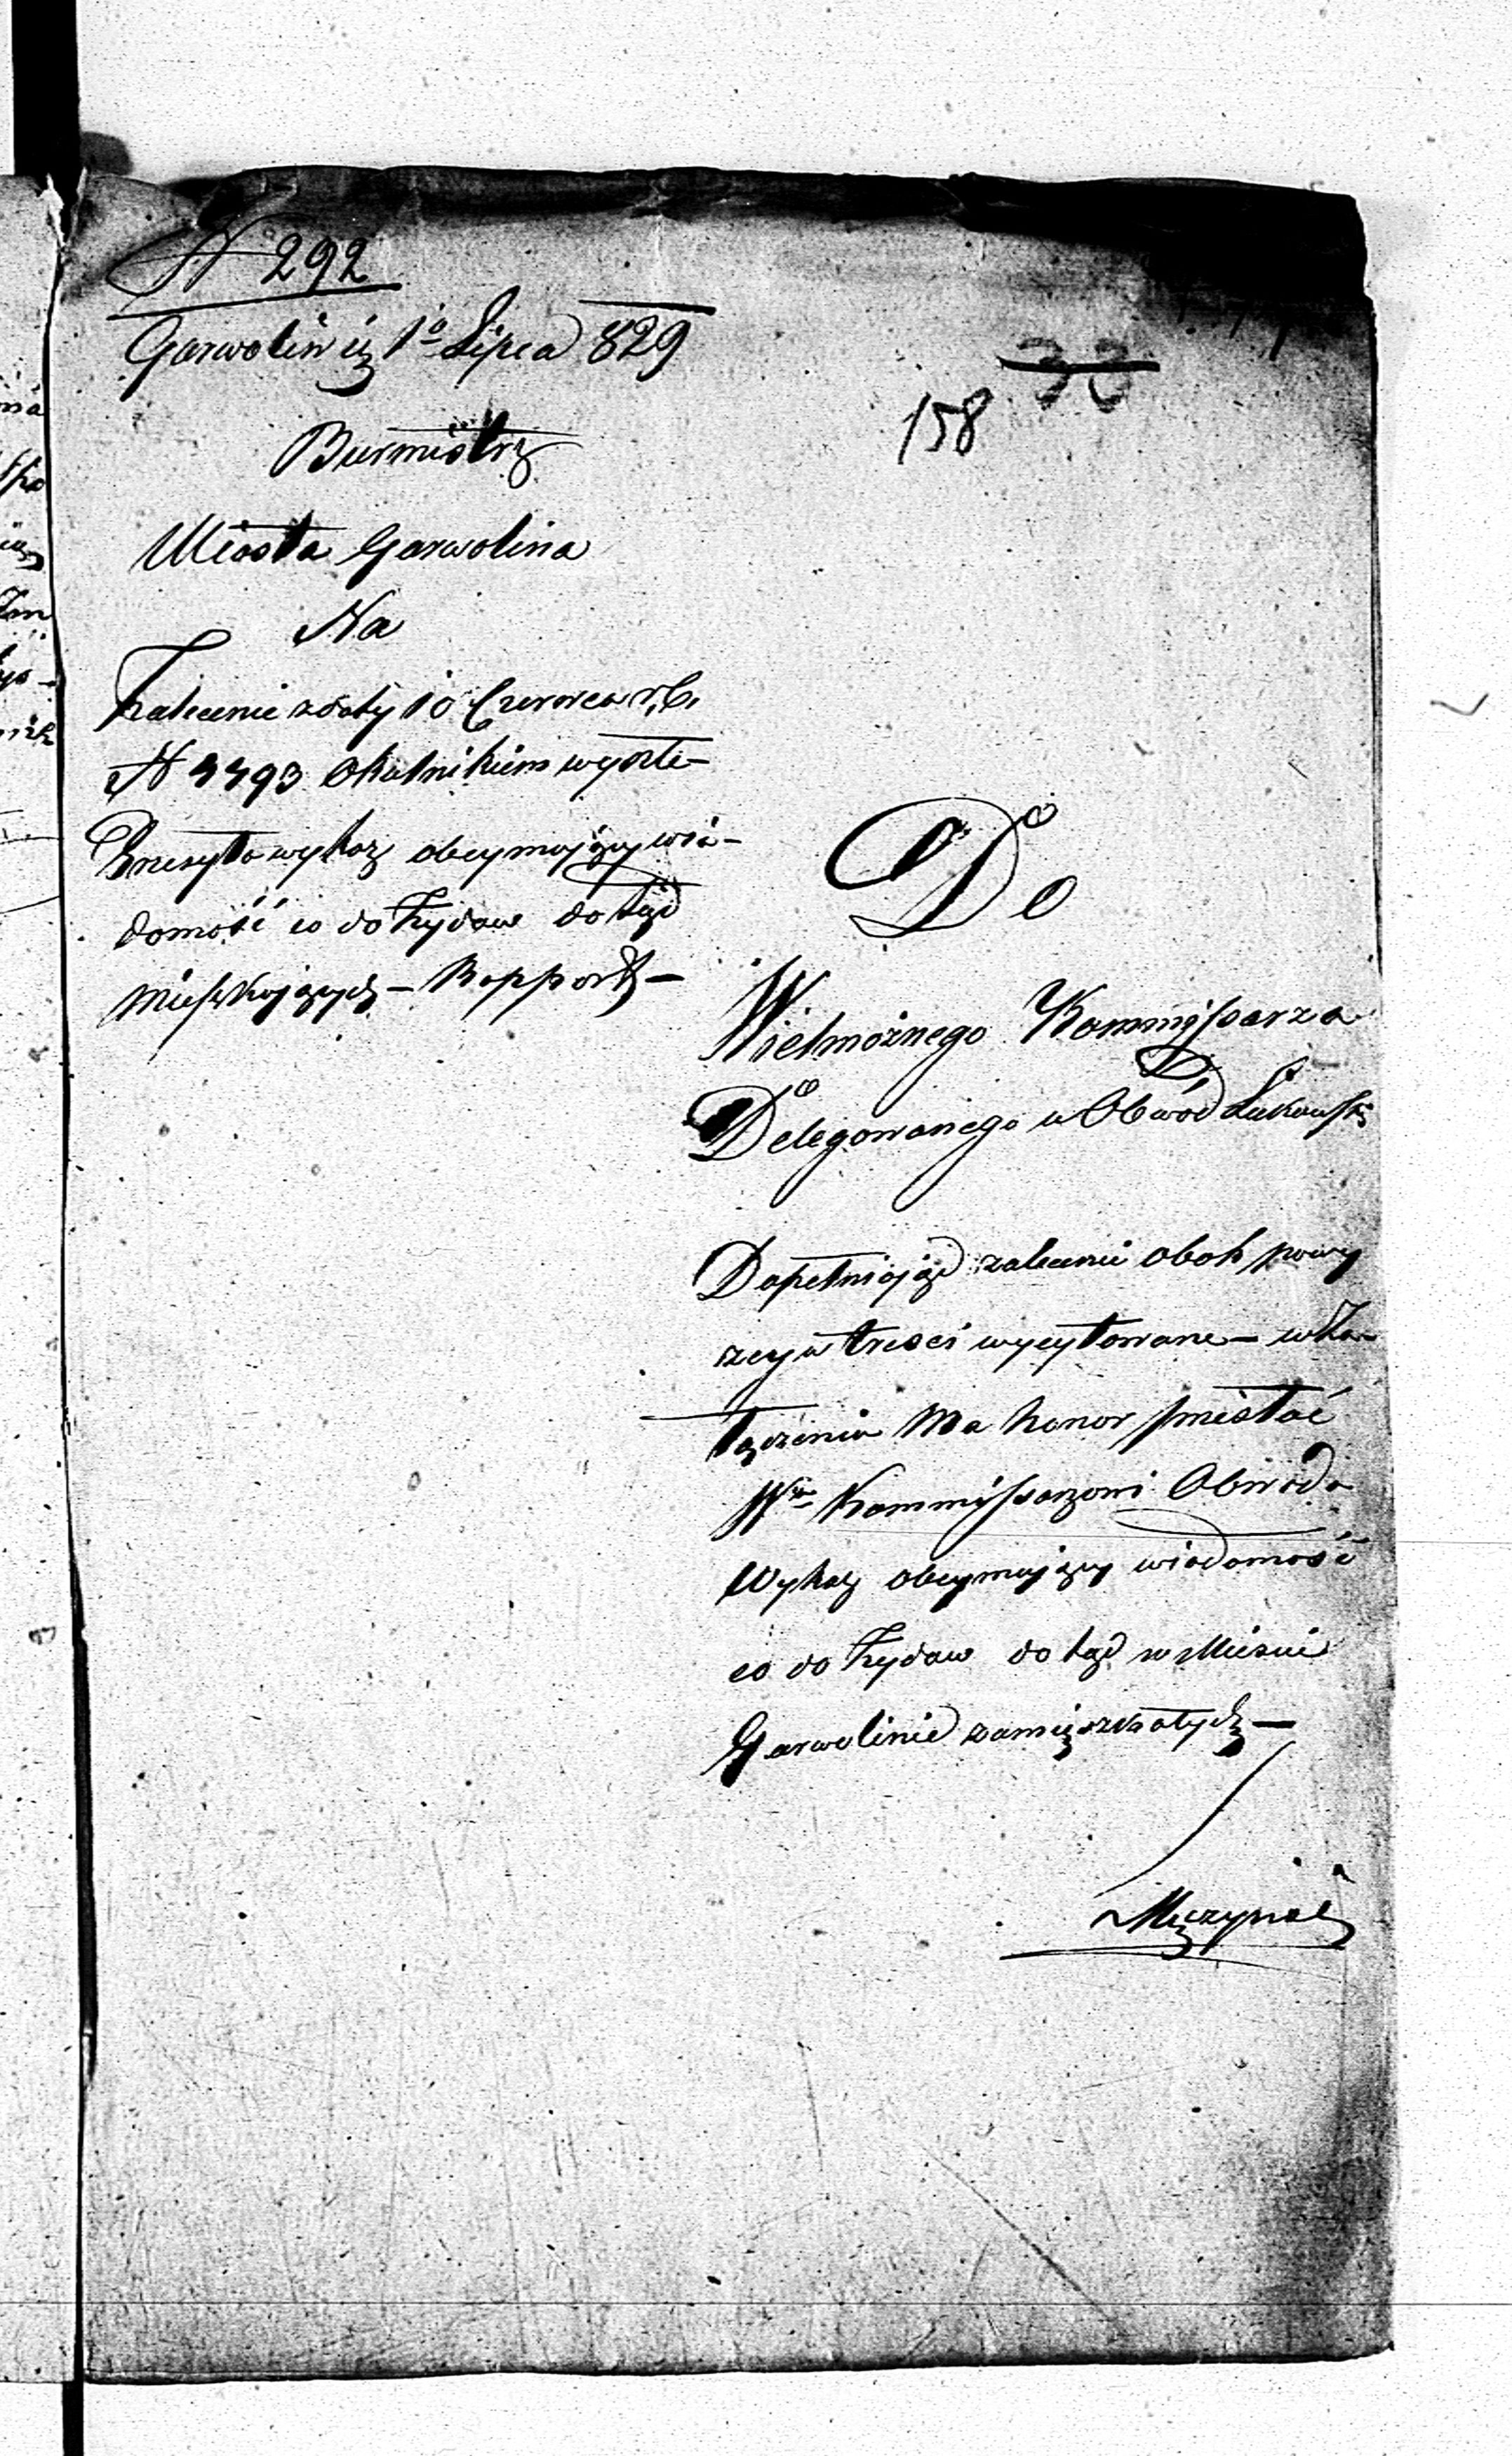 N 292
Garwolin d. 1º Lipca 829
33
158
Burmistrz
Miasta Garwolina
Na
Zalecenie z daty 10 Czerwca r. b.
N 4493 Okulnikiem wyszłe
Przesyła wykaz obeymujący wia-
domość co do Żydow dotąd
mieszkających – Rapport –
Do
Wielmożnego Kommissarza
Delegowanego w Obwód Łukowski
Dopełniając zalecenie obok powy
szey w tresci wycytowane – w Za-
łączeniu Ma honor przesłać
Wmu Kommissarzowi Obwodu
Wykaz obeymujący wiadomość
co do Żydow dotąd w Mieście
Garwolinie zamięszkałych –